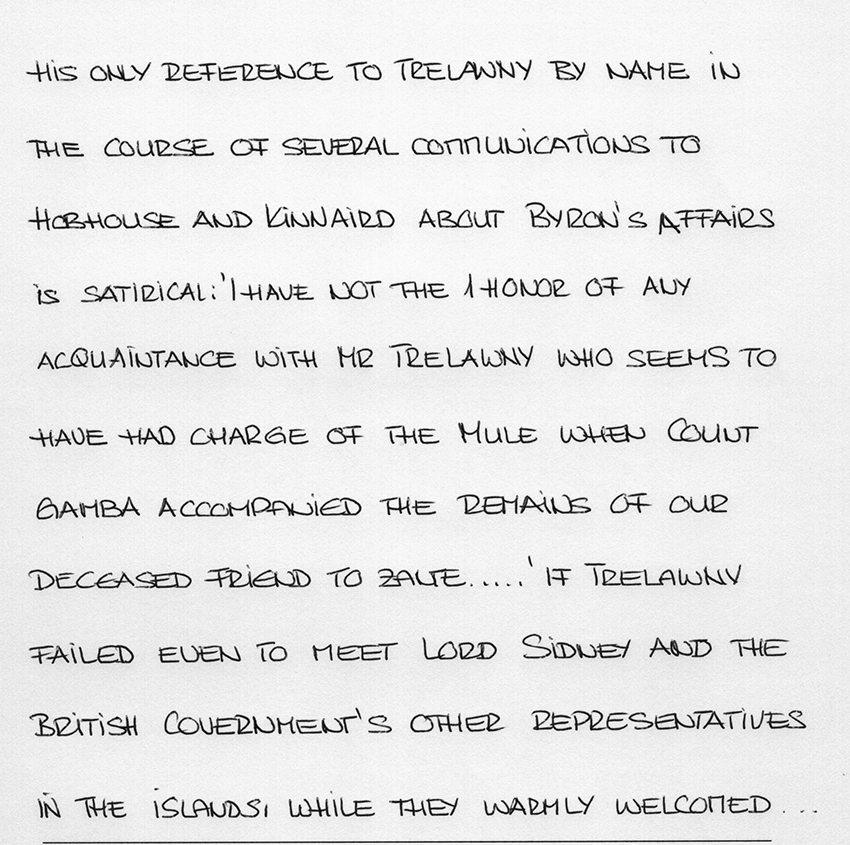 HIS ONLY REFERENCE TO TRELAWNY BY NAME IN
THE COURSE OF SEVERAL COMMUNICATIONS TO
HOBHOUSE AND KINNAIRD ABOUT BYRON'S AFFAIRS
IS SATIRICAL: 'I HAVE NOT THE HONOR OF ANY
ACQUAINTANCE WITH MR TRELAWNY WHO SEEMS TO
HAVE HAD CHARGE OF THE MULE WHEN COUNT
GAMBA ACCOMPANIED THE REMAINS OF OUR
DECEASED FRIEND TO ZANTE.....' IF TRELAWNY
FAILED EVEN TO MEET LORD SIDNEY AND THE
BRITISH GOVERNMENT'S OTHER REPRESENTATIVES
IN THE ISLANDS, WHILE THEY WARMLY WELCOMED...